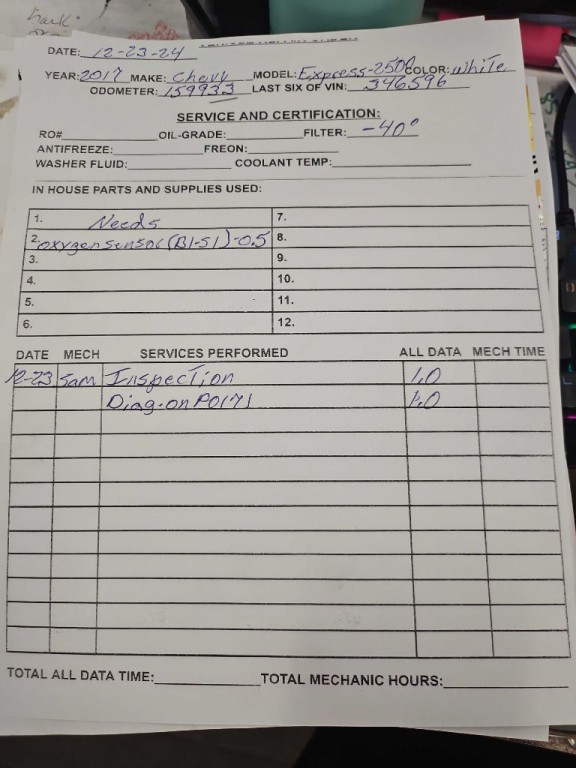 DATE: 12-23-24
YEAR: 2017 MAKE: Chevy MODEL: Express-2500 COLOR: white
ODOMETER: 159933 LAST SIX OF VIN: 346596
SERVICE AND CERTIFICATION:
RO# OIL-GRADE: FILTER: -40°
ANTIFREEZE: FREON:
WASHER FLUID: COOLANT TEMP:
IN HOUSE PARTS AND SUPPLIES USED:
1. Needs 7.
2. oxygen sensor (B1-S1)-0.5 8.
3. 9.
4. 10.
5. 11.
6. 12.
DATE MECH SERVICES PERFORMED ALL DATA MECH TIME
12-23 Sam Inspection 1.0
Diag.on P0171 1.0
TOTAL ALL DATA TIME: TOTAL MECHANIC HOURS: